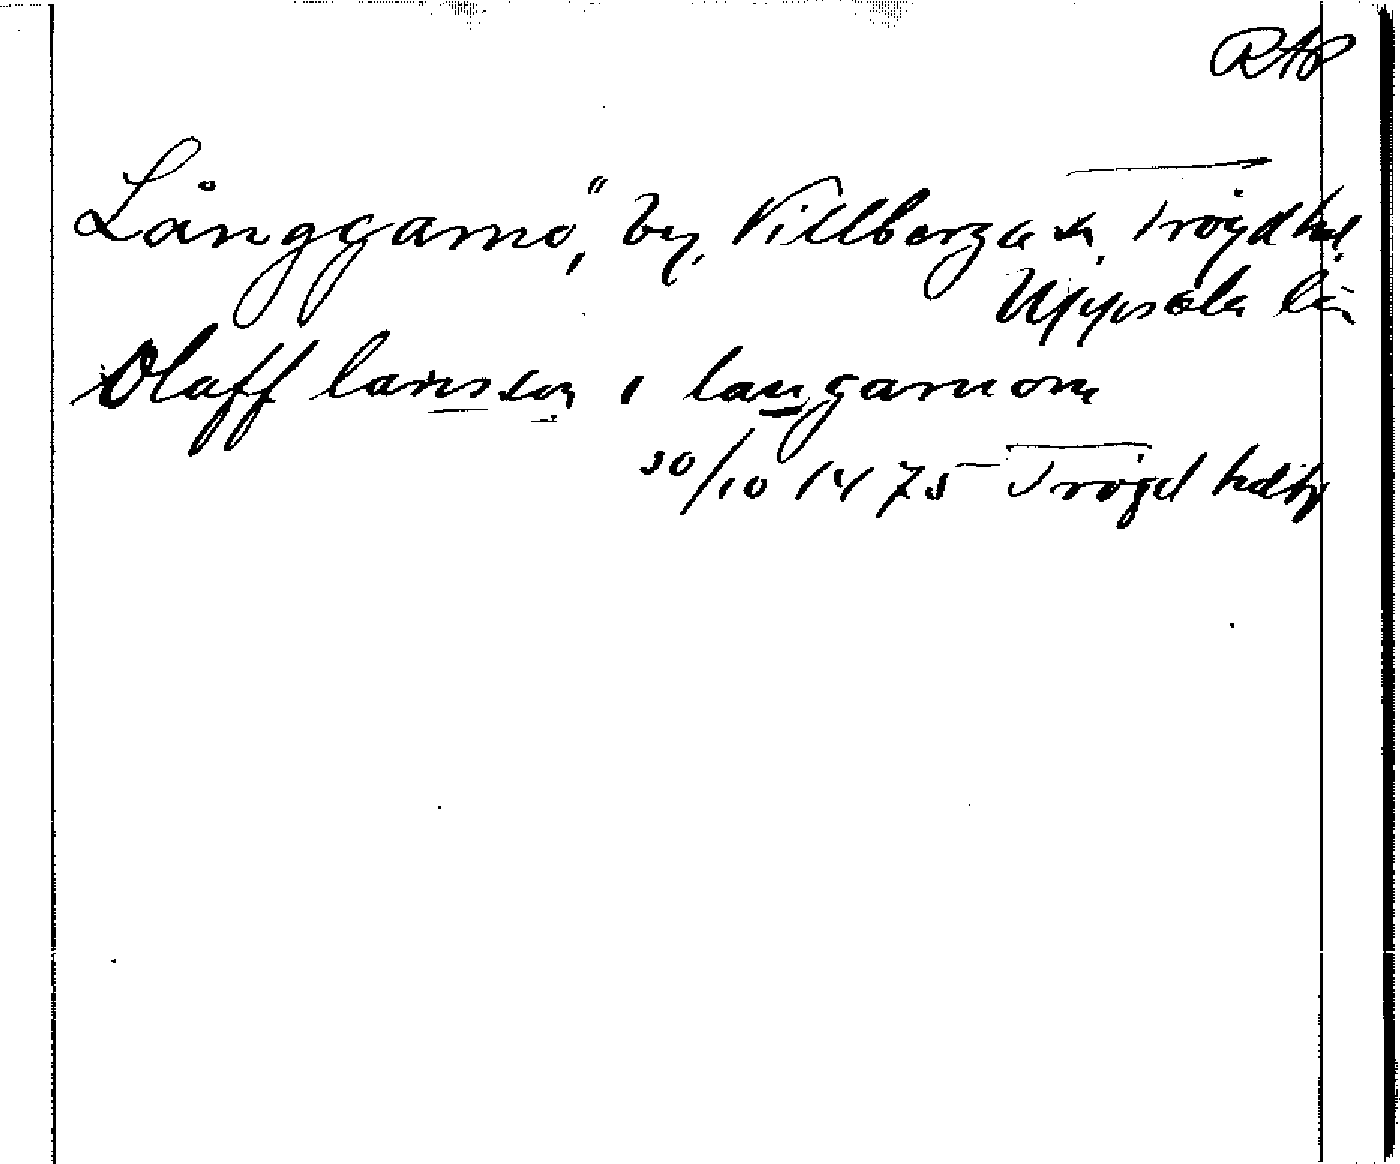 RAP
Långgarno, by, Villberga sn, Trögd hd,
Uppsala län
Olaff larisson i laugarnom
30/10 1475 Trögd hdtg